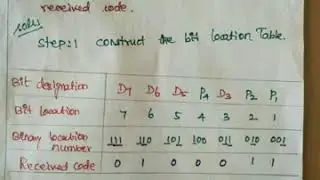 received code.
Soln:
Step:1 construct the bit location Table.
Bit designation D7 D6 D5 P4 D3 P2 P1
Bit location 7 6 5 4 3 2 1
Binary location number 111 110 101 100 011 010 001
Received code 0 1 0 0 0 1 1